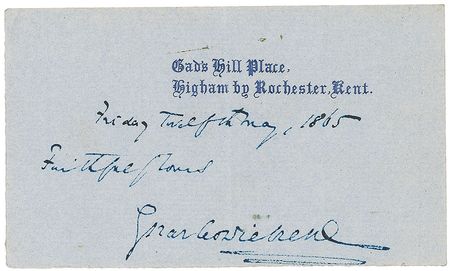 Gad's Hill Place,
Higham by Rochester, Kent.
Friday Twelfth May, 1865
Faithfully Yours
Charles Dickens